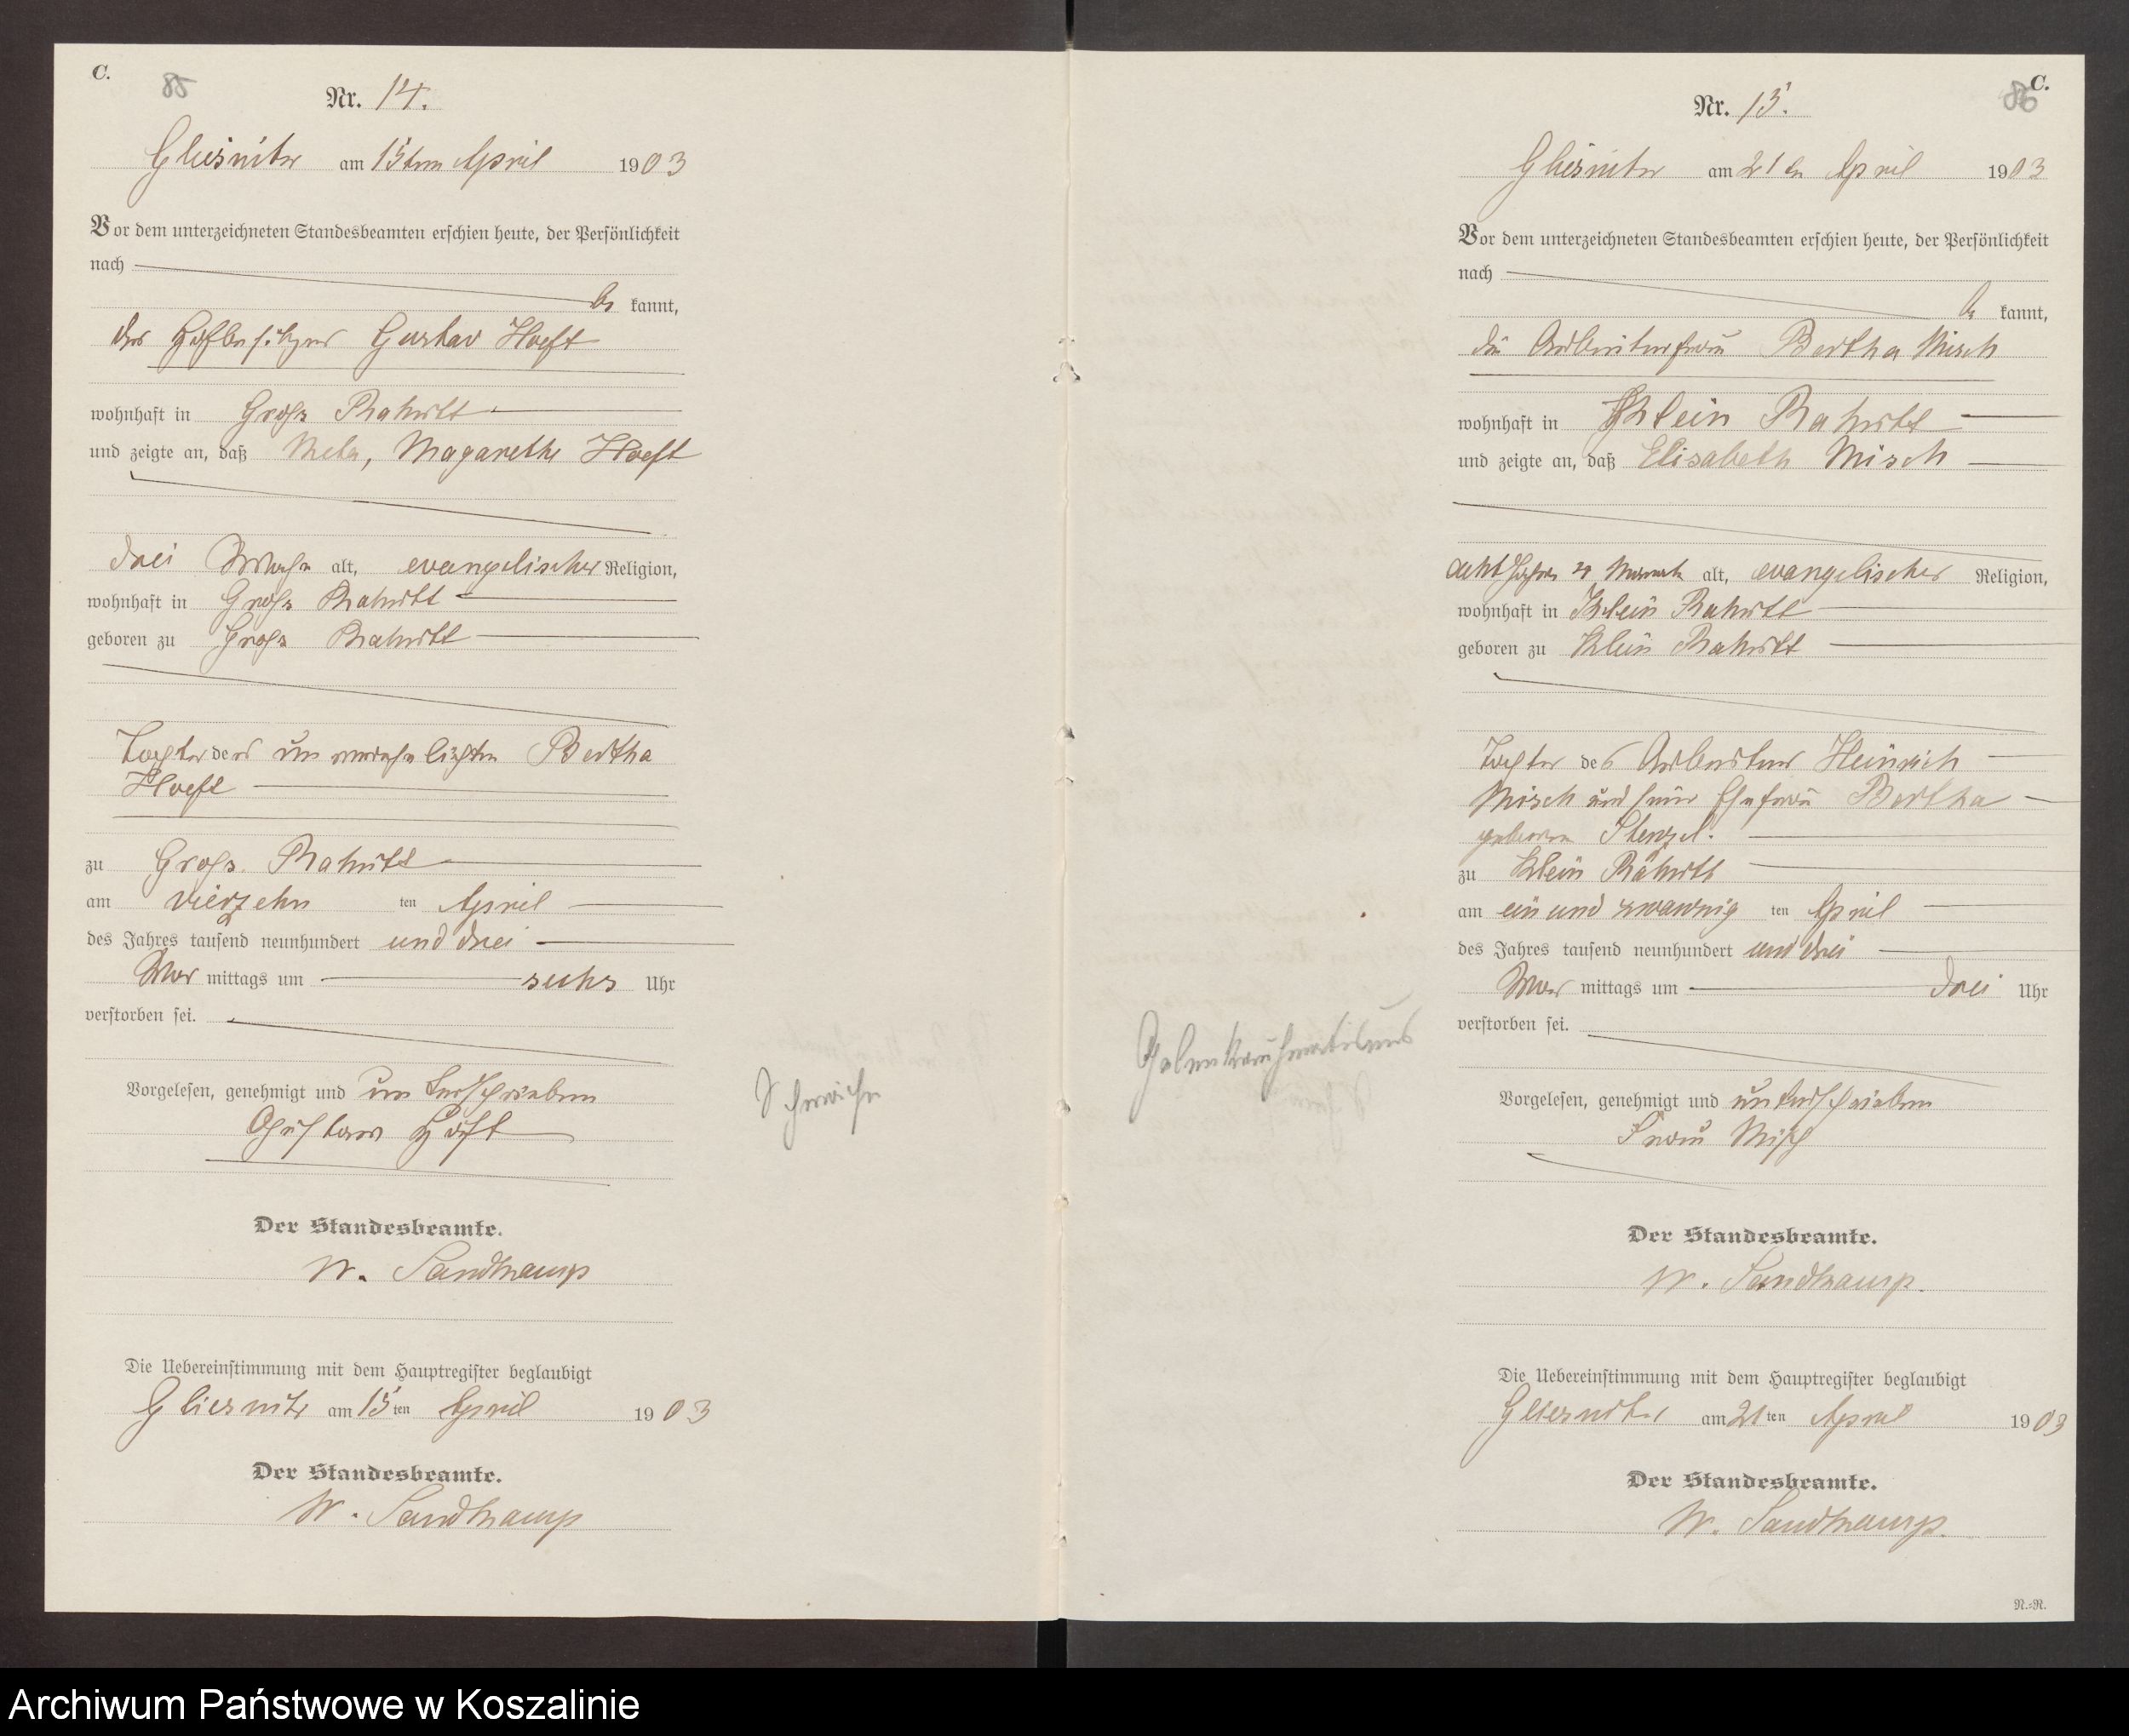 C.
85
Nr. 14.
Gliesnitz am 15ten April 1903
Vor dem unterzeichneten Standesbeamten erschien heute, der Persönlichkeit
nach
be kannt,
der Hofbesitzer Gustav Hoeft
wohnhaft in Gross Rakitt
und zeigte an, daß Meta, Magarethe Hoeft
drei Woche alt, evangelischer Religion,
wohnhaft in Gross Rakitt
geboren zu Gross Rakitt
Tochter der unverehelichten Bertha
Hoeft
zu Gross Rakitt
am vierzehn ten April
des Jahres tausend neunhundert und drei
Vor mittags um sechs Uhr
verstorben sei.
Vorgelesen, genehmigt und unterschrieben
Gustav Höft
Schwäche
Der Standesbeamte.
W. Sandkamp
Die Uebereinstimmung mit dem Hauptregister beglaubigt
Gliesnitz am 15ten April 1903
Der Standesbeamte.
W. Sandkamp
C.
86
Nr. 15.
Gliesnitz am 21ten April 1903
Vor dem unterzeichneten Standesbeamten erschien heute, der Persönlichkeit
nach
be kannt,
die Arbeiterfrau Bertha Misch
wohnhaft in Klein Rakitt
und zeigte an, daß Elisabeth Misch
acht Jahre Monate alt, evangelischer Religion,
wohnhaft in Klein Rakitt
geboren zu Klein Rakitt
Tochter des Arbeiter Heinrich
Misch und seiner Ehefrau Bertha
geborene Stenzel.
zu Klein Rakitt
am ein und zwanzig ten April
des Jahres tausend neunhundert und drei
Vor mittags um drei Uhr
verstorben sei.
Gelenkreuhmatismus
Vorgelesen, genehmigt und unterschrieben
Frau Misch
Der Standesbeamte.
W. Sandkamp.
Die Uebereinstimmung mit dem Hauptregister beglaubigt
Gliesnitz am 21ten April 1903
Der Standesbeamte.
W. Sandkamp.
N.=N.
Archiwum Państwowe w Koszalinie